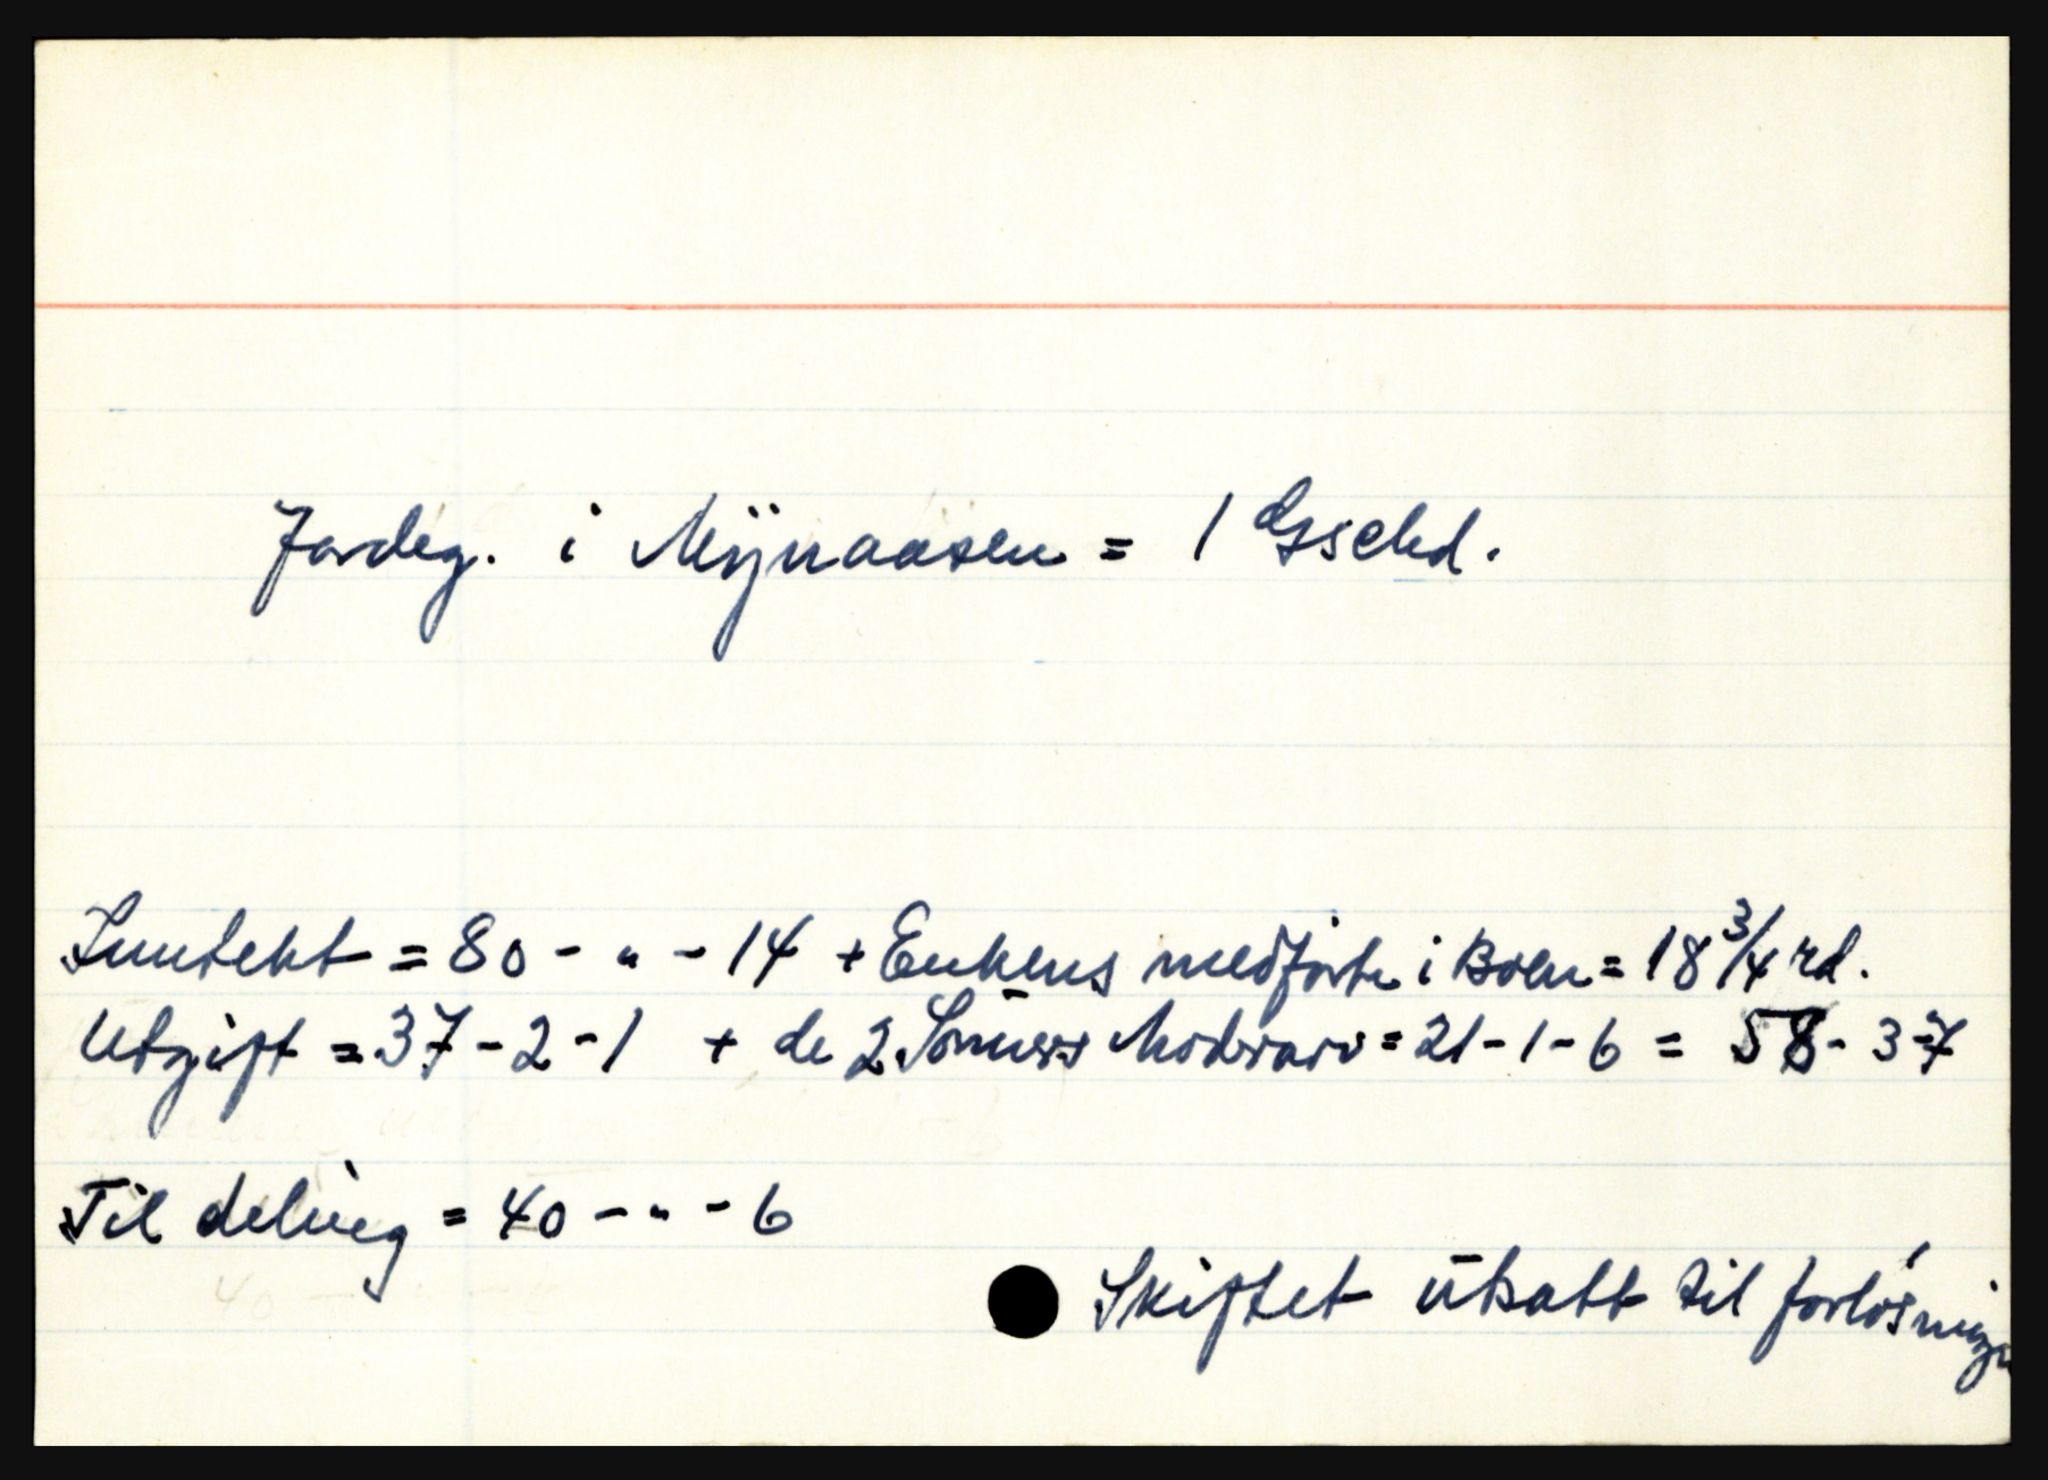 Jordeg. i Mÿnaasen = 1 Gsskd.
Inntekt = 80 - " - 14 + Enkens medførte i Boen = 18 3/4 rd.
Utgift = 37 - 2 - 1 + de 2 Sønners Modrarv = 21 - 1 - 6 = 58 - 3 - 7
Til deling = 40 - " - 6
Skiftet utsatt til forløsningen